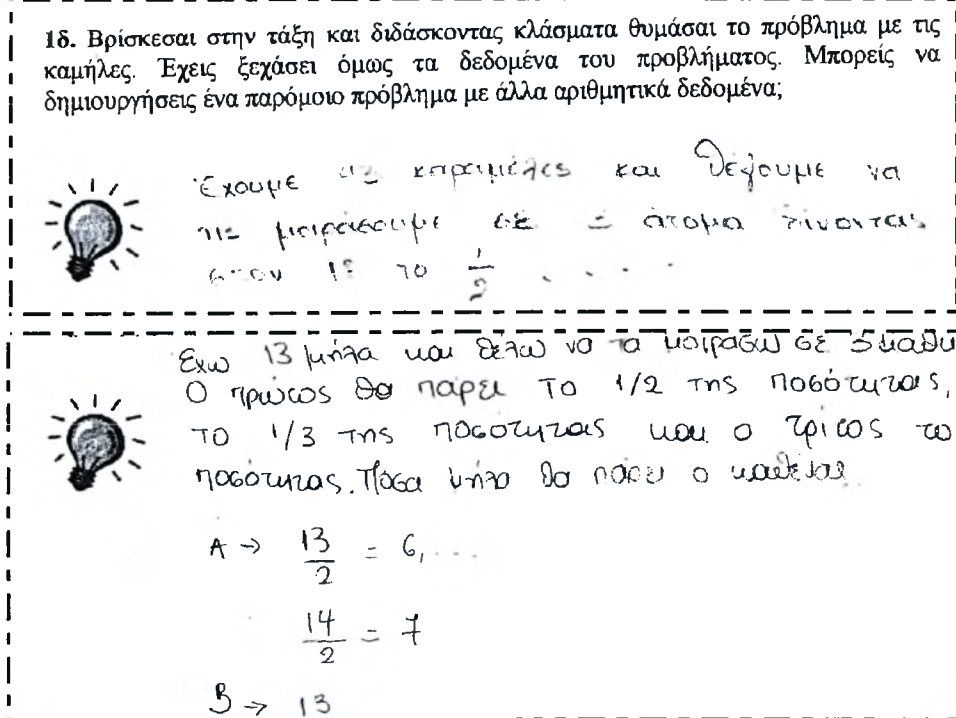 1δ. Βρίσκεσαι στην τάξη και διδάσκοντας κλάσματα θυμάσαι το πρόβλημα με τις
καμήλες. Έχεις ξεχάσει όμως τα δεδομένα του προβλήματος. Μπορείς να
δημιουργήσεις ένα παρόμοιο πρόβλημα με άλλα αριθμητικά δεδομένα;
Έχουμε καραμέλες και θέλουμε να
μοιράσουμε σε άτομα δίνοντας
στον 1º το 1/2 . . . .
Εχω 13 μήλα και θελω να τα μοιρασω σε 3
Ο πρώτος θα παρει το 1/2 της ποσότητας,
το 1/3 της ποσοτητας και ο τρίτος το
ποσότητας. Πόσα μήλα θα πάρει ο καθένας
A → 13/2 = 6, . . .
14/2 = 7
B → 13